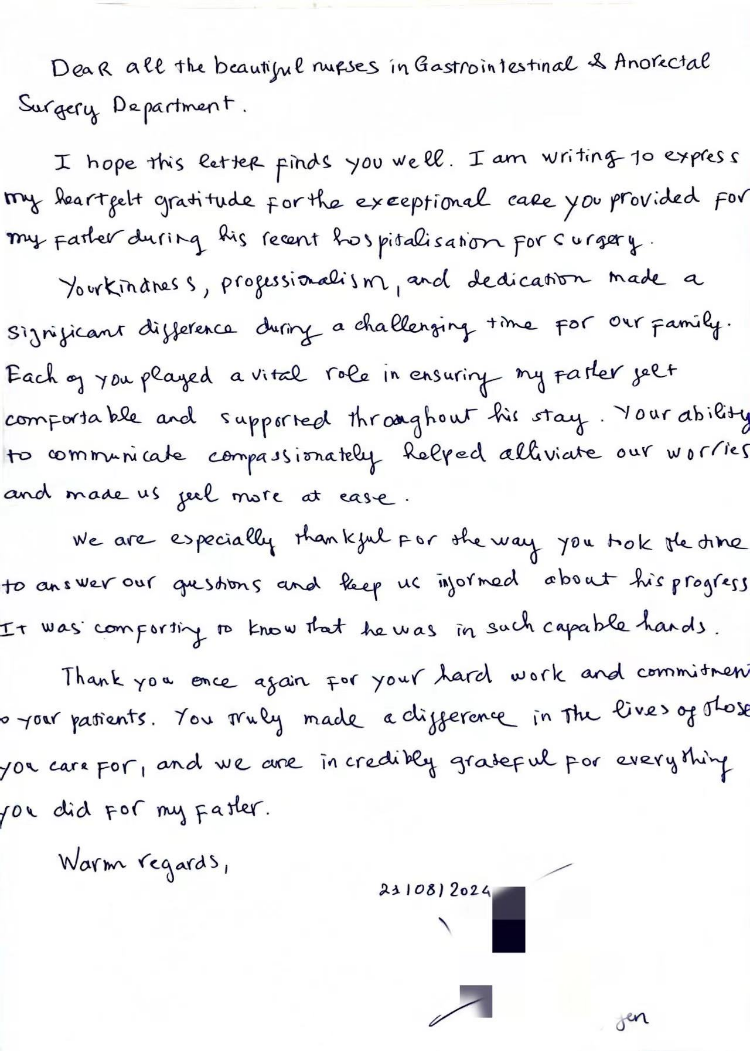 Dear all the beautiful nurses in Gastrointestinal & Anorectal
Surgery Department.
I hope this letter finds you well. I am writing to express
my heartfelt gratitude for the exceptional care you provided for
my father during his recent hospitalisation for surgery.
Your kindness, professionalism, and dedication made a
significant difference during a challenging time for our family.
Each of you played a vital role in ensuring my father felt
comfortable and supported throughout his stay. Your ability
to communicate compassionately helped alliviate our worries
and made us feel more at ease.
We are especially thankful for the way you took the time
to answer our questions and keep us informed about his progress
It was comforting to know that he was in such capable hands.
Thank you once again for your hard work and commitmen
o your patients. You truly made a difference in the lives of those
you care for, and we are incredibly grateful for everything
you did for my father.
Warm regards,
21/08/2024